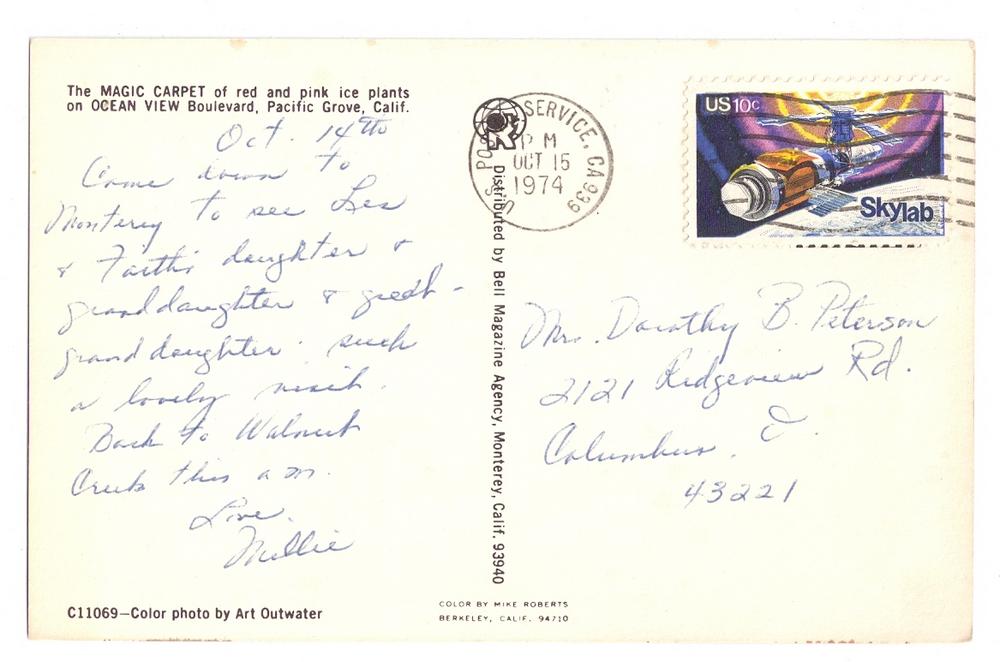 The MAGIC CARPET of red and pink ice plants
on OCEAN VIEW Boulevard, Pacific Grove, Calif.
Oct. 14th
Came down to
Monterey to see Les
& Faith's daughter &
granddaughter & great-
granddaughter. such
a lovely visit.
Back to Walnut
Creek this a.m.
Love.
Millie
C11069—Color photo by Art Outwater
Distributed by Bell Magazine Agency, Monterey, Calif. 93940
COLOR BY MIKE ROBERTS
BERKELEY, CALIF. 94710
U.S. POSTAL SERVICE, CA 939
PM
OCT 15
1974
US 10c
Skylab
Mrs. Dorothy B. Peterson
2121 Ridgeview Rd.
Columbus, O.
43221